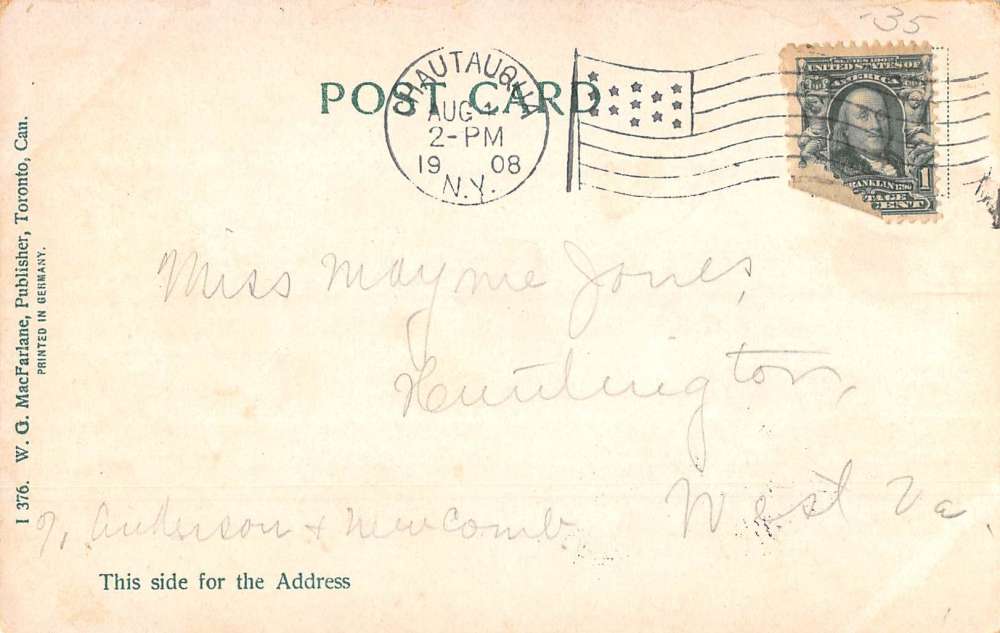 .35
POST CARD
CHAUTAUQUA
AUG 4
2-PM
19 08
N.Y.
SERIES 1902
UNITED STATES OF
AMERICA
FRANKLIN 1790
1
TAGE
CENT
Miss Mayme Jones,
Huntington,
West Va.
c/o Anderson & Newcomb
This side for the Address
I 376. W. G. MacFarlane, Publisher, Toronto, Can.
PRINTED IN GERMANY.